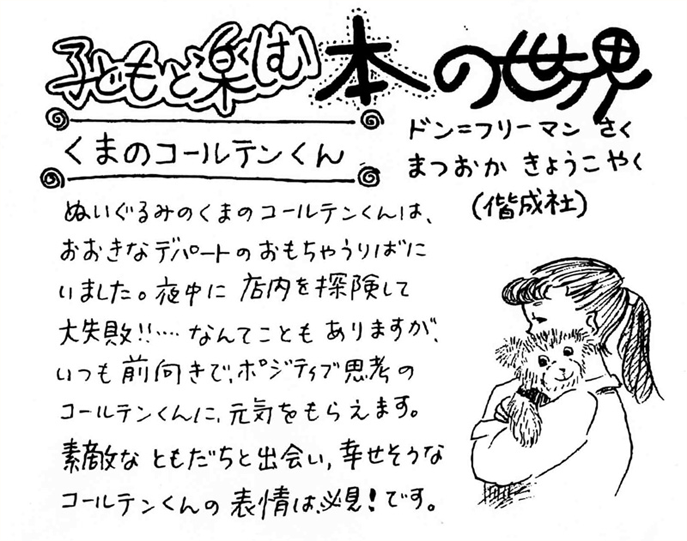 子どもと楽しむ本の世界
くまのコールテンくん
ドン=フリーマン さく
まつおか きょうこ やく
(偕成社)
ぬいぐるみのくまのコールテンくんは、
おおきなデパートのおもちゃうりばに
いました。夜中に店内を探険して
大失敗!!…なんてこともありますが、
いつも前向きで、ポジティブ思考の
コールテンくんに、元気をもらえます。
素敵なともだちと出会い、幸せそうな
コールテンくんの表情は、必見!です。